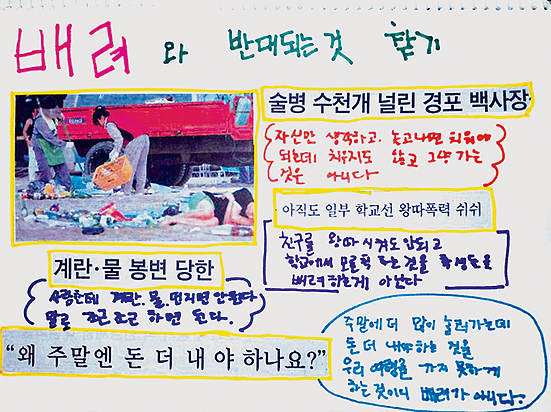 배려 와 반대되는것 찾기
술병 수천개 널린 경포 백사장
자신만 생각하고. 놀고나면 치워야
되는데 치우지도 않고 그냥 가는
것은 아니다
아직도 일부 학교선 왕따폭력 쉬쉬
친구를 왕따 시켜도 안되고
학교에서 모르쭉 하는것을 학생들을
배려하는게 아니다
계란·물 봉변 당한
사람한테 계란. 물. 던지면 안된다
말로 조근조근 하면 된다.
“왜 주말엔 돈 더 내야 하나요?”
주말에 더 많이 놀러가는데
돈 더 내야하는 것을
우리 여행을 가지 못하게
하는것이니 배려가 아니다.